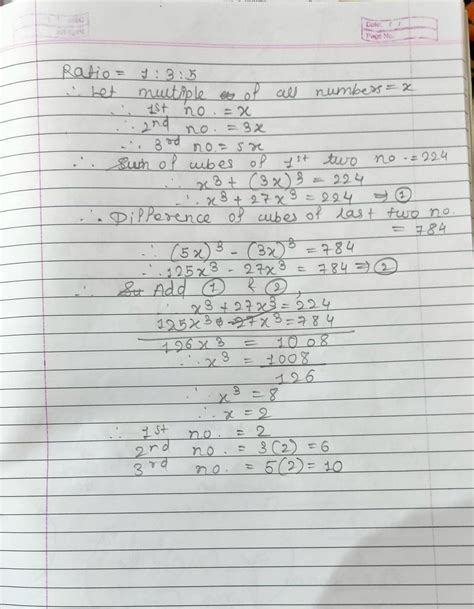 Date: / /
Page No.
Ratio = 1 : 3 : 5
∴ Let multiple of all numbers = x
∴ 1st no. = x
∴ 2nd no. = 3x
∴ 3rd no = 5x
∴ Sum of cubes of 1st two no. = 224
∴ x³ + (3x)³ = 224
∴ x³ + 27x³ = 224 ⇒ ①
∴ Difference of cubes of last two no.
= 784
∴ (5x)³ - (3x)³ = 784
∴ 125x³ - 27x³ = 784 ⇒ ②
∴ Add ① & ②,
x³ + 27x³ = 224
125x³ - 27x³ = 784
126x³ = 1008
∴ x³ = 1008
126
∴ x³ = 8
∴ x = 2
∴ 1st no. = 2
2nd no. = 3(2) = 6
3rd no. = 5(2) = 10